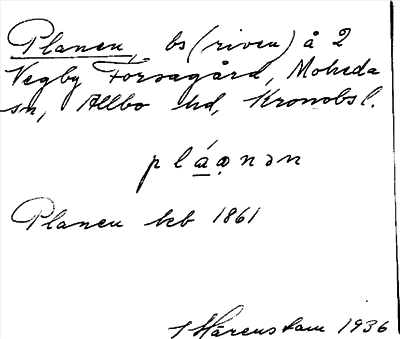 Planen, bs (riven) å 2
Vegby Forsagård, Moheda
sn, Allbo hd, Kronobs l.
pláo̤nən
Planen hcb 1861
Härenstam 1936